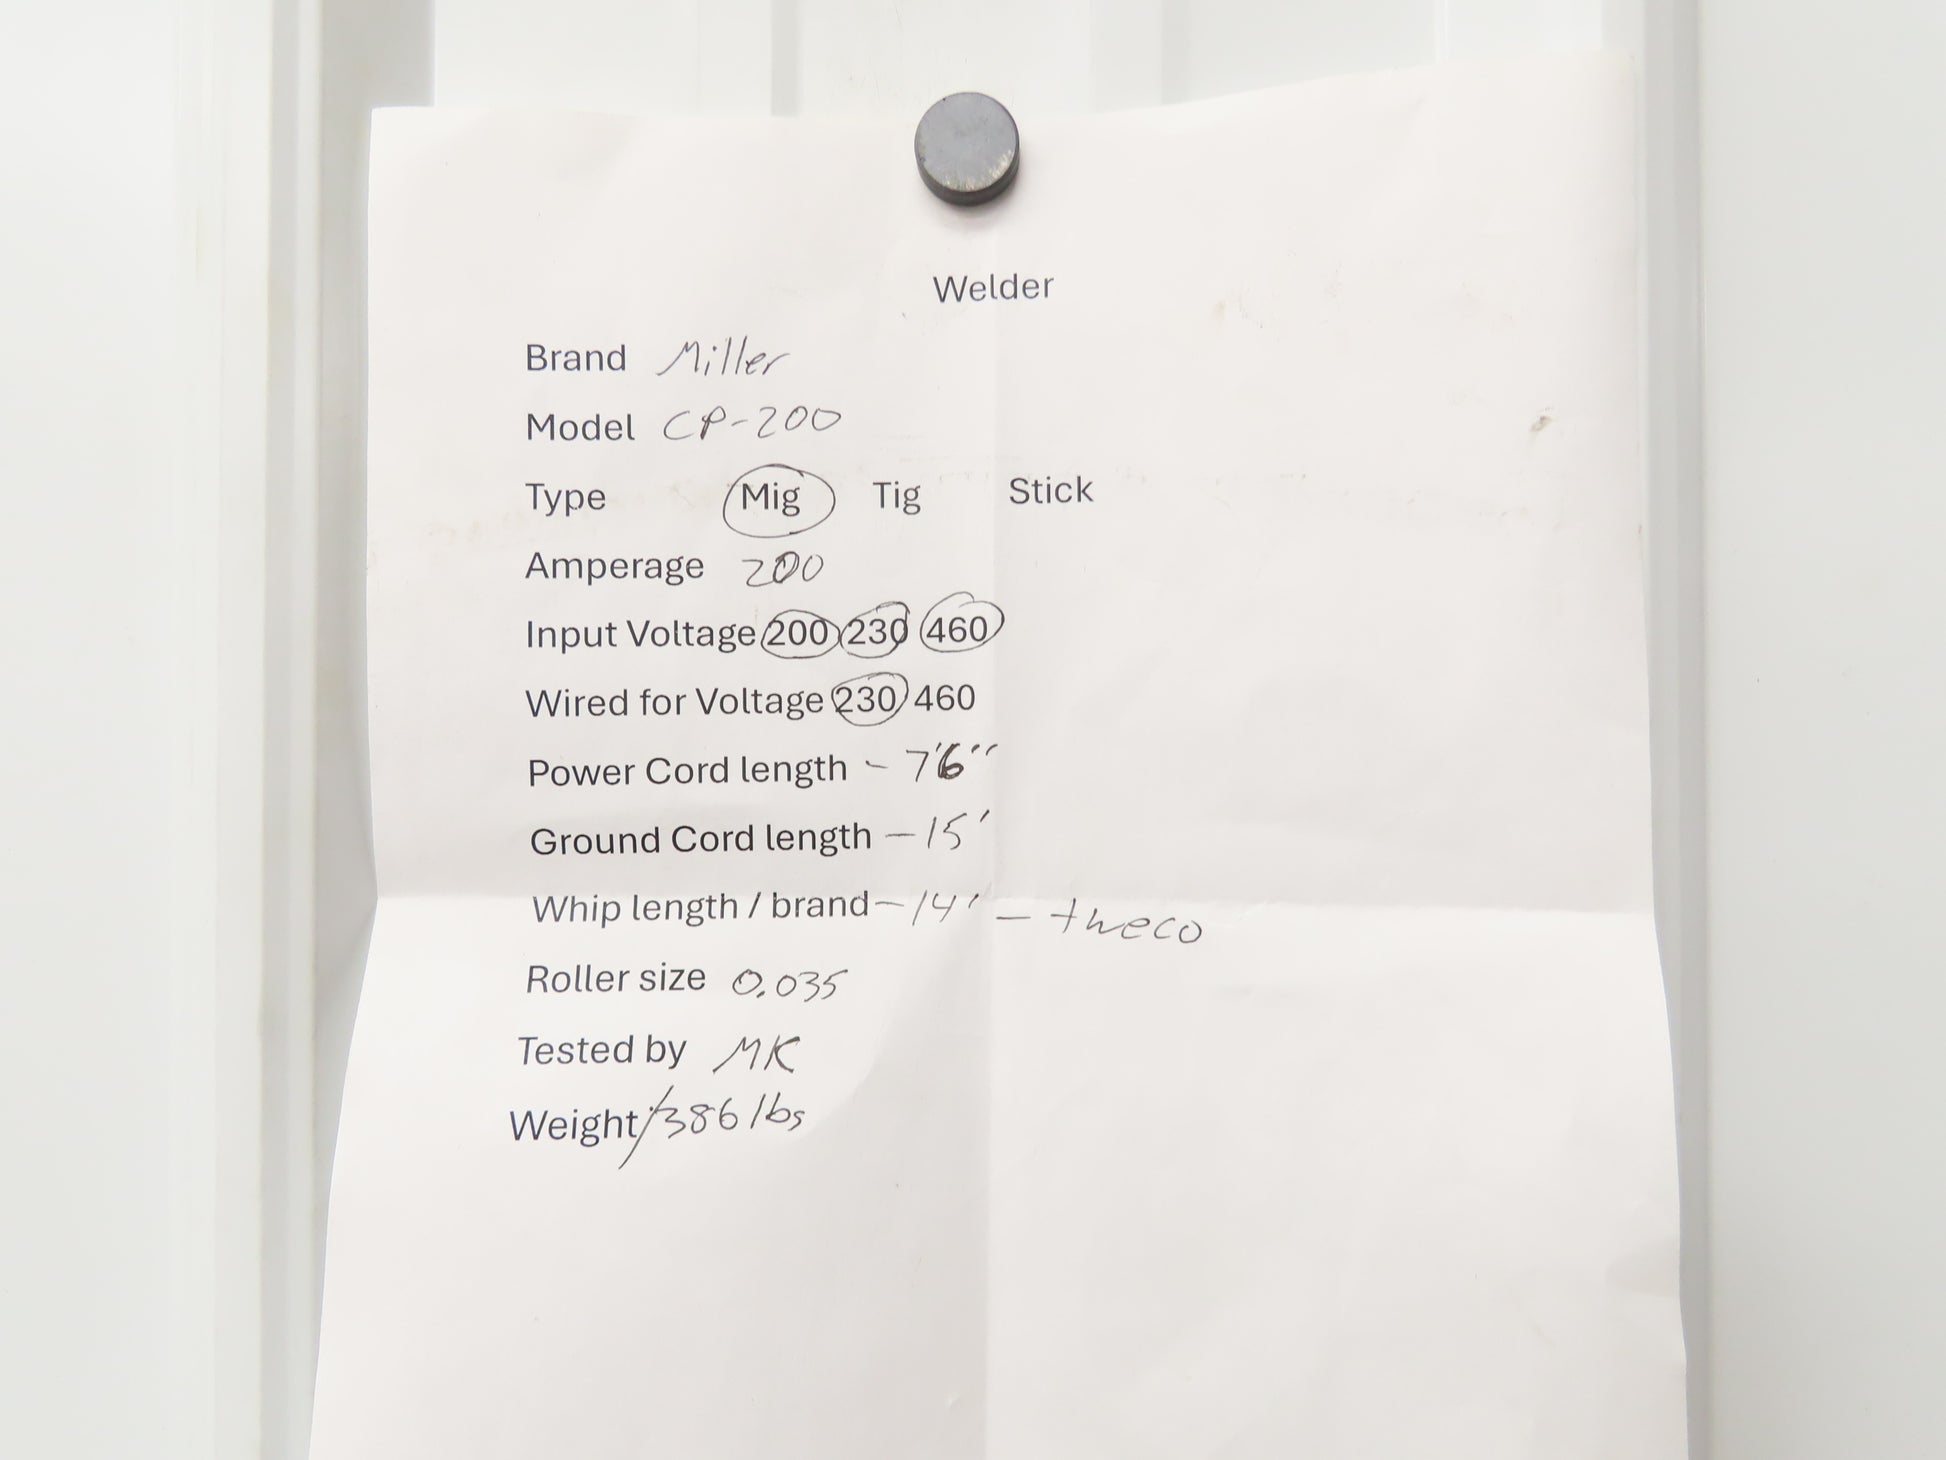 Welder
Brand Miller
Model CP-200
Type Mig Tig Stick
Amperage 200
Input Voltage 200 230 460
Wired for Voltage 230 460
Power Cord length - 7'6"
Ground Cord length - 15'
Whip length / brand - 14' - tweco
Roller size 0.035
Tested by MK
Weight 386 lbs